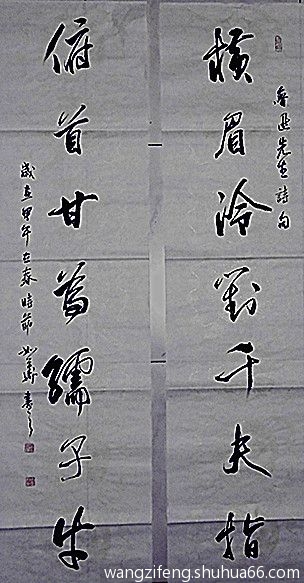 横眉冷對千夫指
魯迅先生詩句
俯首甘為孺子牛
歲在甲午 春時節 書
wangzifeng.shuhua66.com